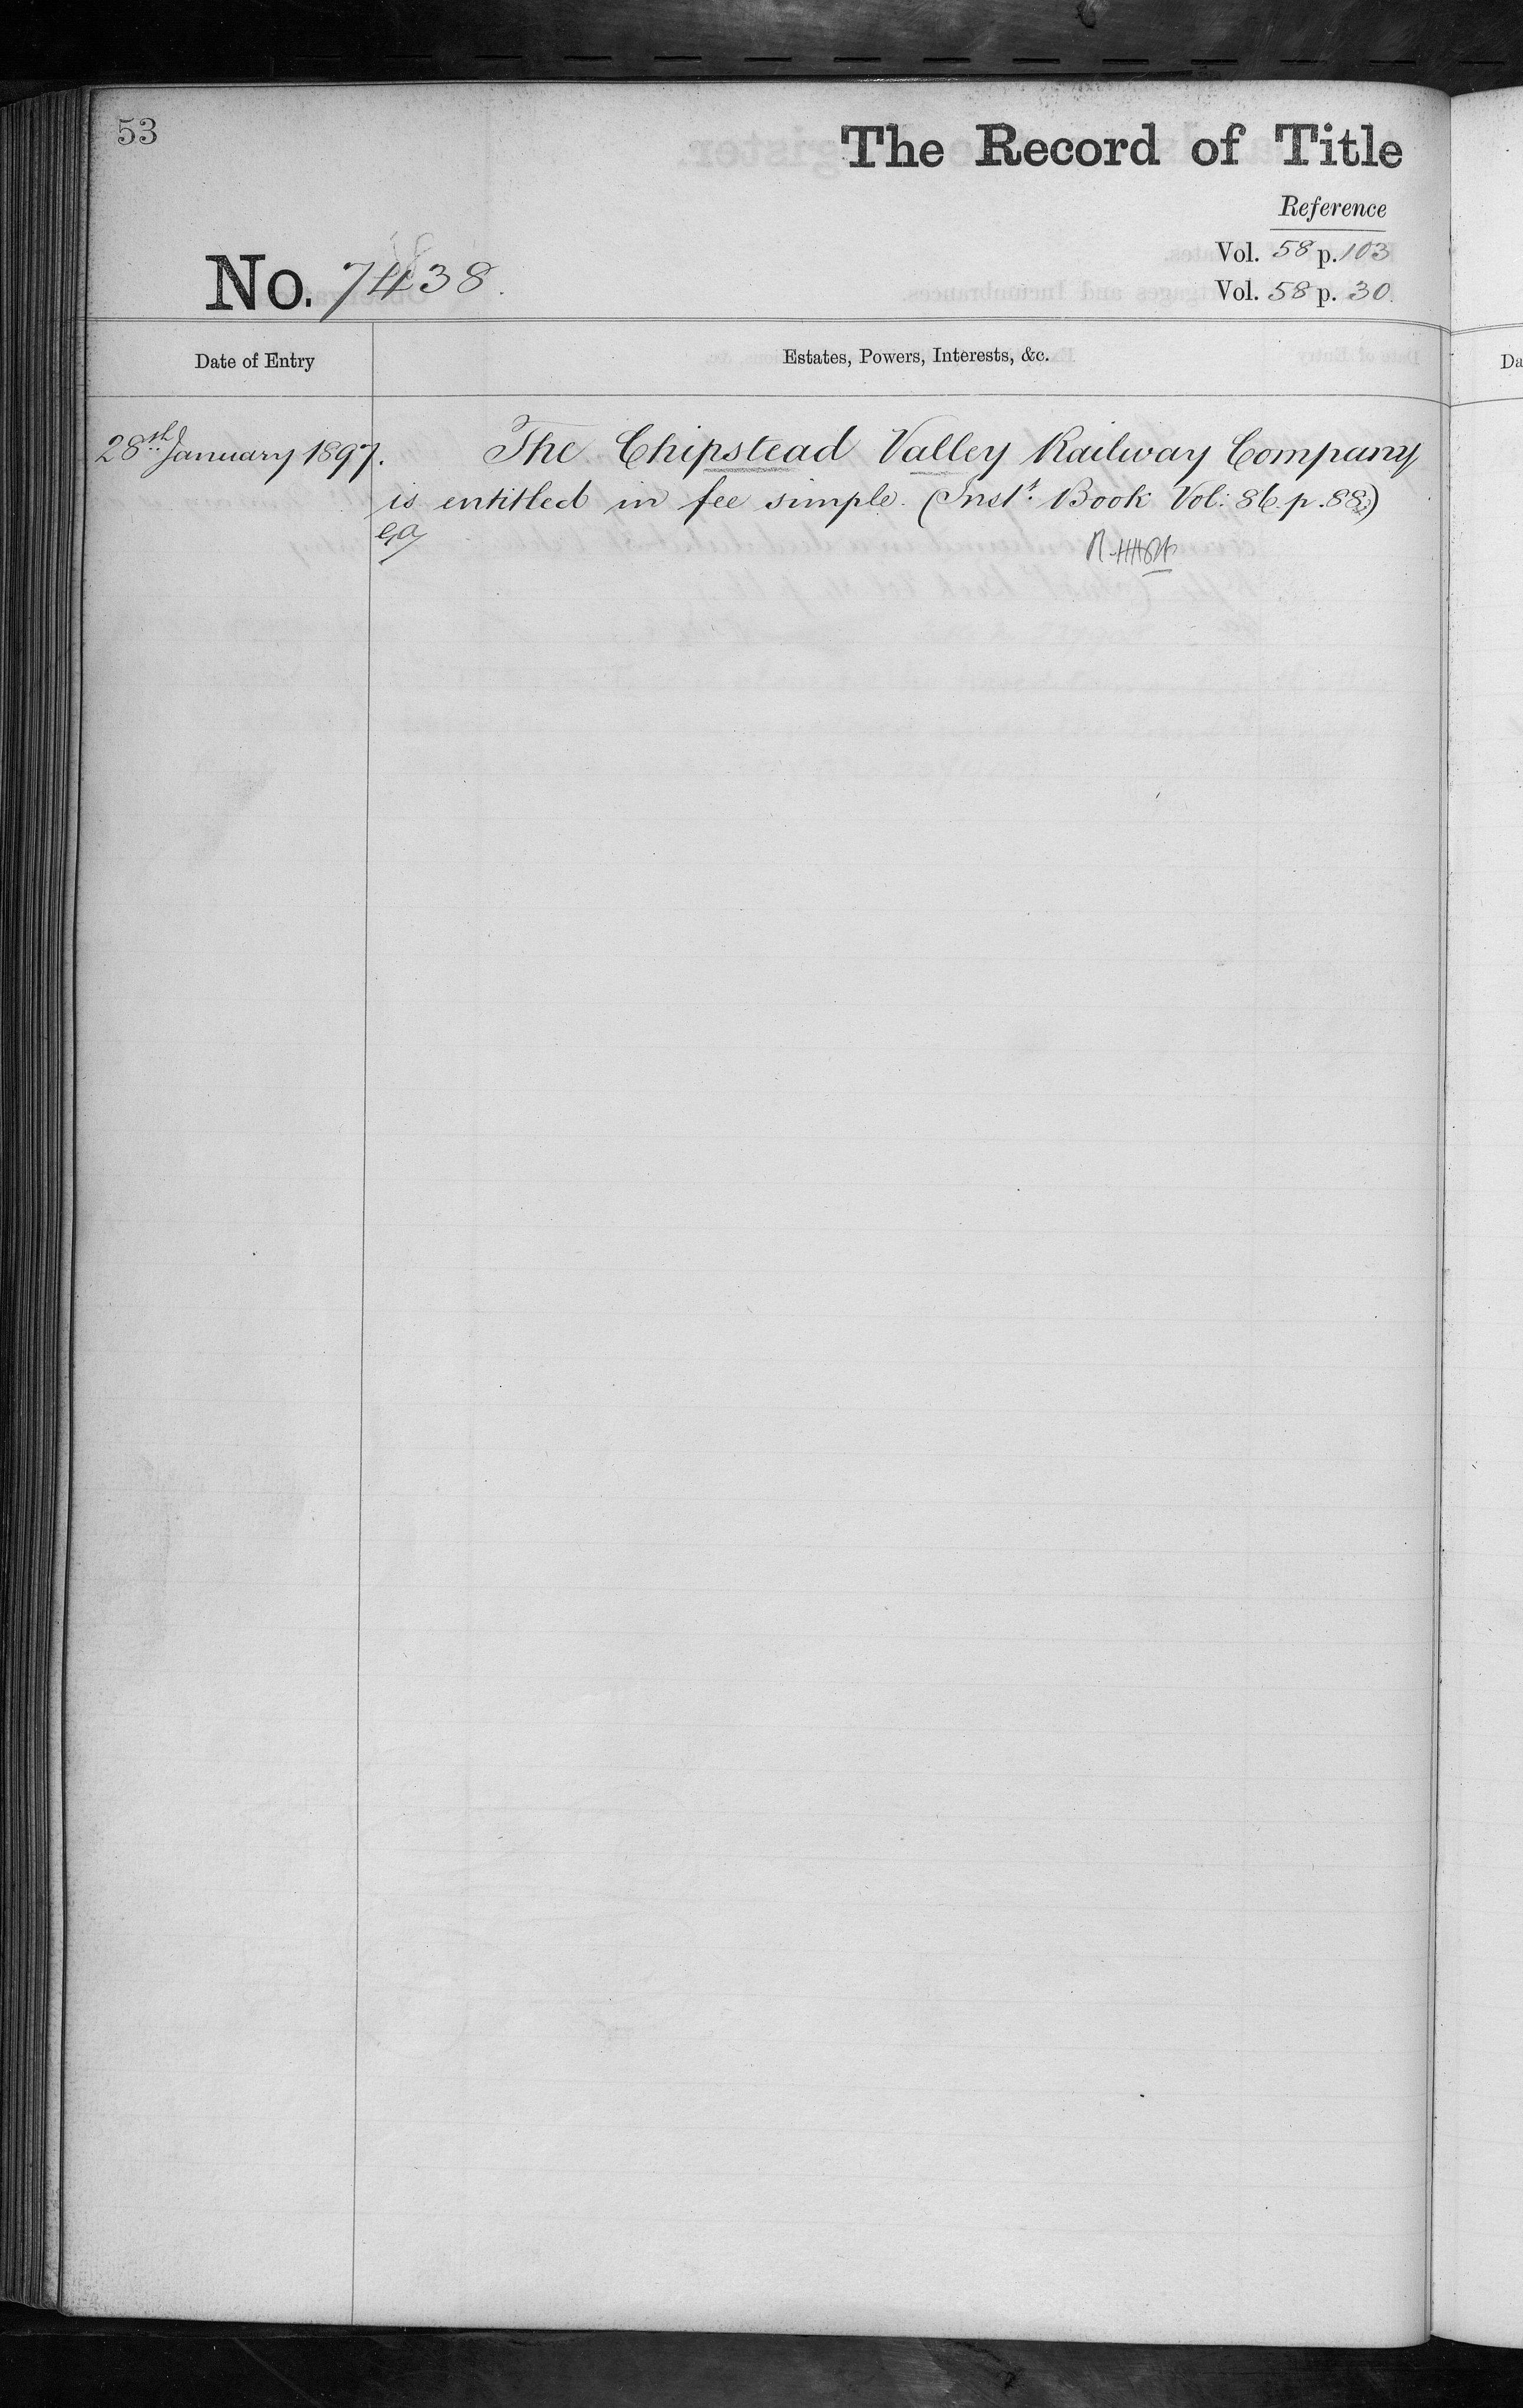 53
The Record of Title
Reference
Vol. 58 p. 103
Vol. 58 p. 30.
No. 7438.
Date of Entry
Estates, Powers, Interests, &c.
28th January 1897.
The Chipstead Valley Railway Company
is entitled in fee simple. (Inst. Book Vol: 86. p. 88.)
Da